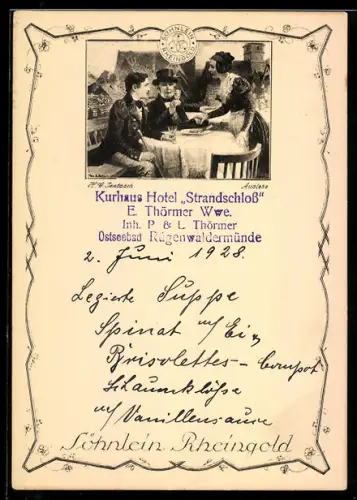 SÖHNLEIN
RHEINGOLD
Auslese
Kurhaus Hotel „Strandschloß"
E. Thörmer Wwe.
Inh. P & L Thörmer
Ostseebad Rügenwaldermünde
2. Juni 1928.
Legierte Suppe
Spinat m/ Ei
Brisolettes - Compot
Schaumklöße
m/ Vanillensauce
Söhnlein Rheingold